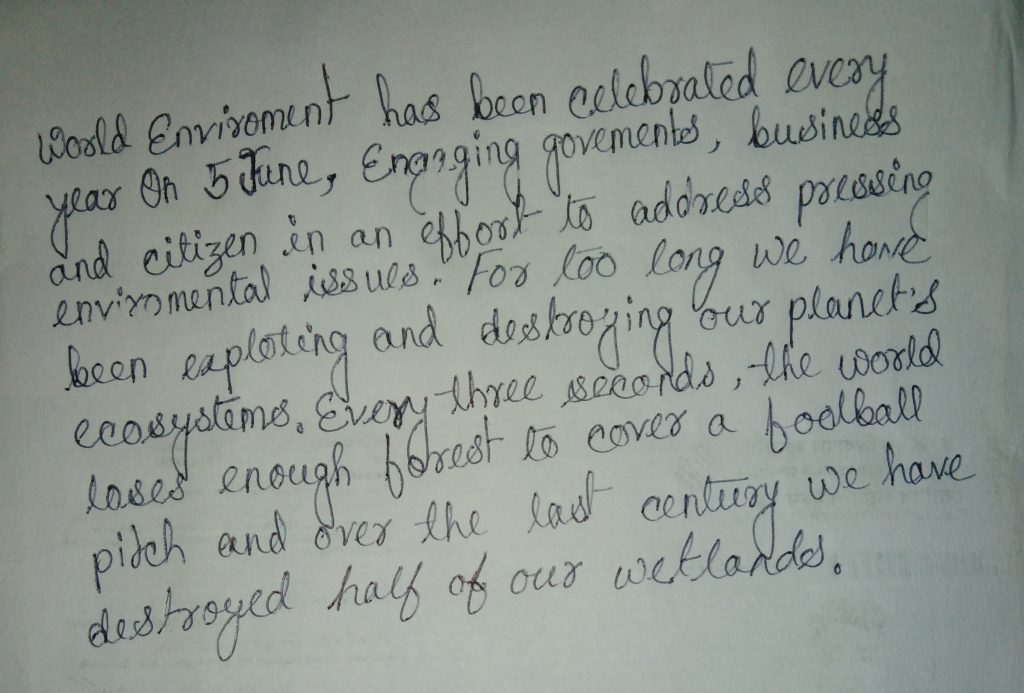 World Enviroment has been celebrated every
year On 5 June, Engaging govements, business
and citizen in an effort to address pressing
enviromental issues. For too long we have
been exploting and destroying our planet's
ecosystems. Every three seconds, the world
loses enough forest to cover a football
pitch and over the last century we have
destroyed half of our wetlands.